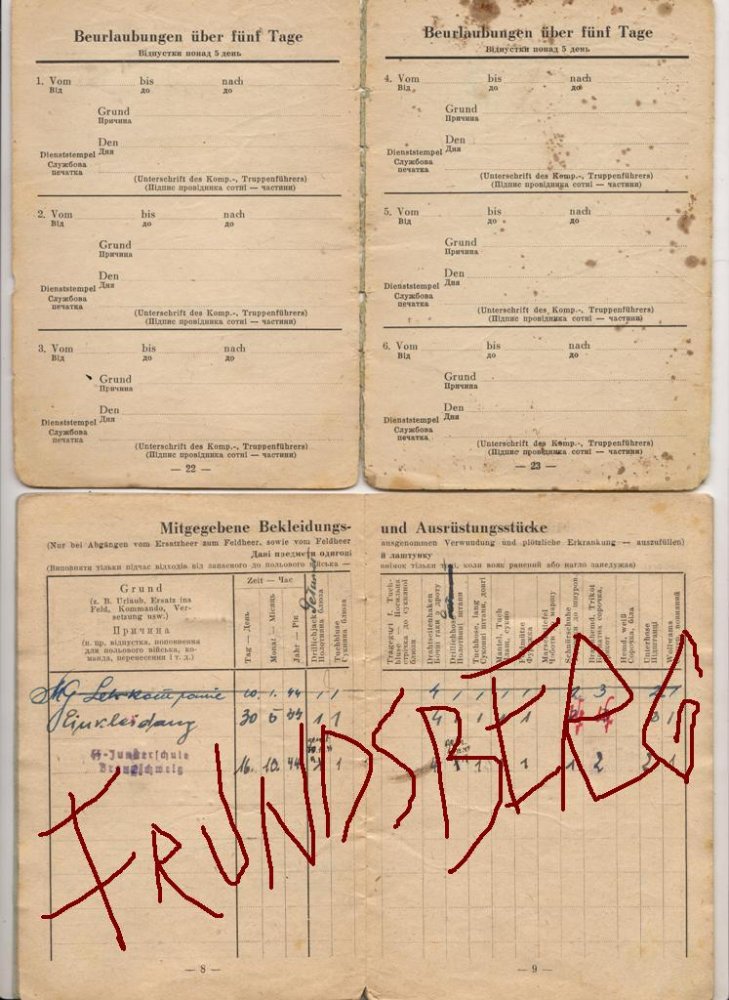 Beurlaubungen über fünf Tage
Відпустки понад 5 день
1. Vom bis nach
Від до до
Grund
Причина
Den
Дня
Dienststempel
Службова
печатка
(Unterschrift des Komp.-, Truppenführers)
(Підпис провідника сотні — частини)
2. Vom bis nach
Від до до
Grund
Причина
Den
Дня
Dienststempel
Службова
печатка
(Unterschrift des Komp.-, Truppenführers)
(Підпис провідника сотні — частини)
3. Vom bis nach
Від до до
Grund
Причина
Den
Дня
Dienststempel
Службова
печатка
(Unterschrift des Komp.-, Truppenführers)
(Підпис провідника сотні — частини)
— 22 —
Beurlaubungen über fünf Tage
Відпустки понад 5 день
4. Vom bis nach
Від до до
Grund
Причина
Den
Дня
Dienststempel
Службова
печатка
(Unterschrift des Komp.-, Truppenführers)
(Підпис провідника сотні — частини)
5. Vom bis nach
Від до до
Grund
Причина
Den
Дня
Dienststempel
Службова
печатка
(Unterschrift des Komp.-, Truppenführers)
(Підпис провідника сотні — частини)
6. Vom bis nach
Від до до
Grund
Причина
Den
Дня
Dienststempel
Службова
печатка
(Unterschrift des Komp.-, Truppenführers)
(Підпис провідника сотні — частини)
— 23 —
Mitgegebene Bekleidungs- und Ausrüstungsstücke
(Nur bei Abgängen vom Ersatzheer zum Feldheer, sowie vom Feldheer ausgenommen Verwundung und plötzliche Erkrankung — auszufüllen)
Дані предмети одягові й лаштунку
(Виповняти тільки підчас відходів від запасного до польового війська —
Grund
(z. B. Urlaub, Ersatz ins
Feld, Kommando, Ver-
setzung usw.)
Причина
(н. пр. відпустка, поповнення
для польового війська, ко-
манда, перенесення і т. д.)
Zeit — Час
Tag — День
Monat — Місяць
Jahr — Рік
Drillichjacke
Полотняна блюза
Tuchbluse
Суконна блюза
Drahtseitenhaken
Бочні гаки з дроту
Полотняні штани
Tuchhose, lang
Суконні штани, довгі
Mantel, Tuch
Плащ, сукно
Schnürschuhe
Hemd, weiß
Сорочка, біла
Unterhose
Підштанці
10. 1. 44 1 1
Einkleidung 30 5 44 1 1
SS-Junkerschule
Braunschweig
16. 10. 44
FRUNDSBERG
— 8 —
— 9 —